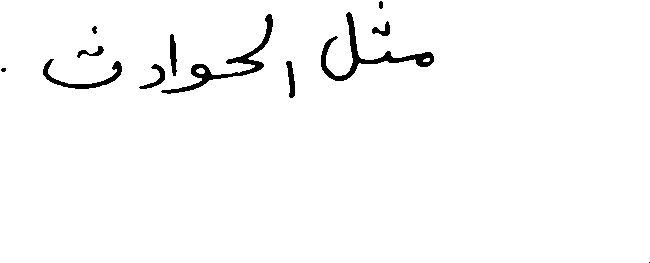 مثل الحوادث .